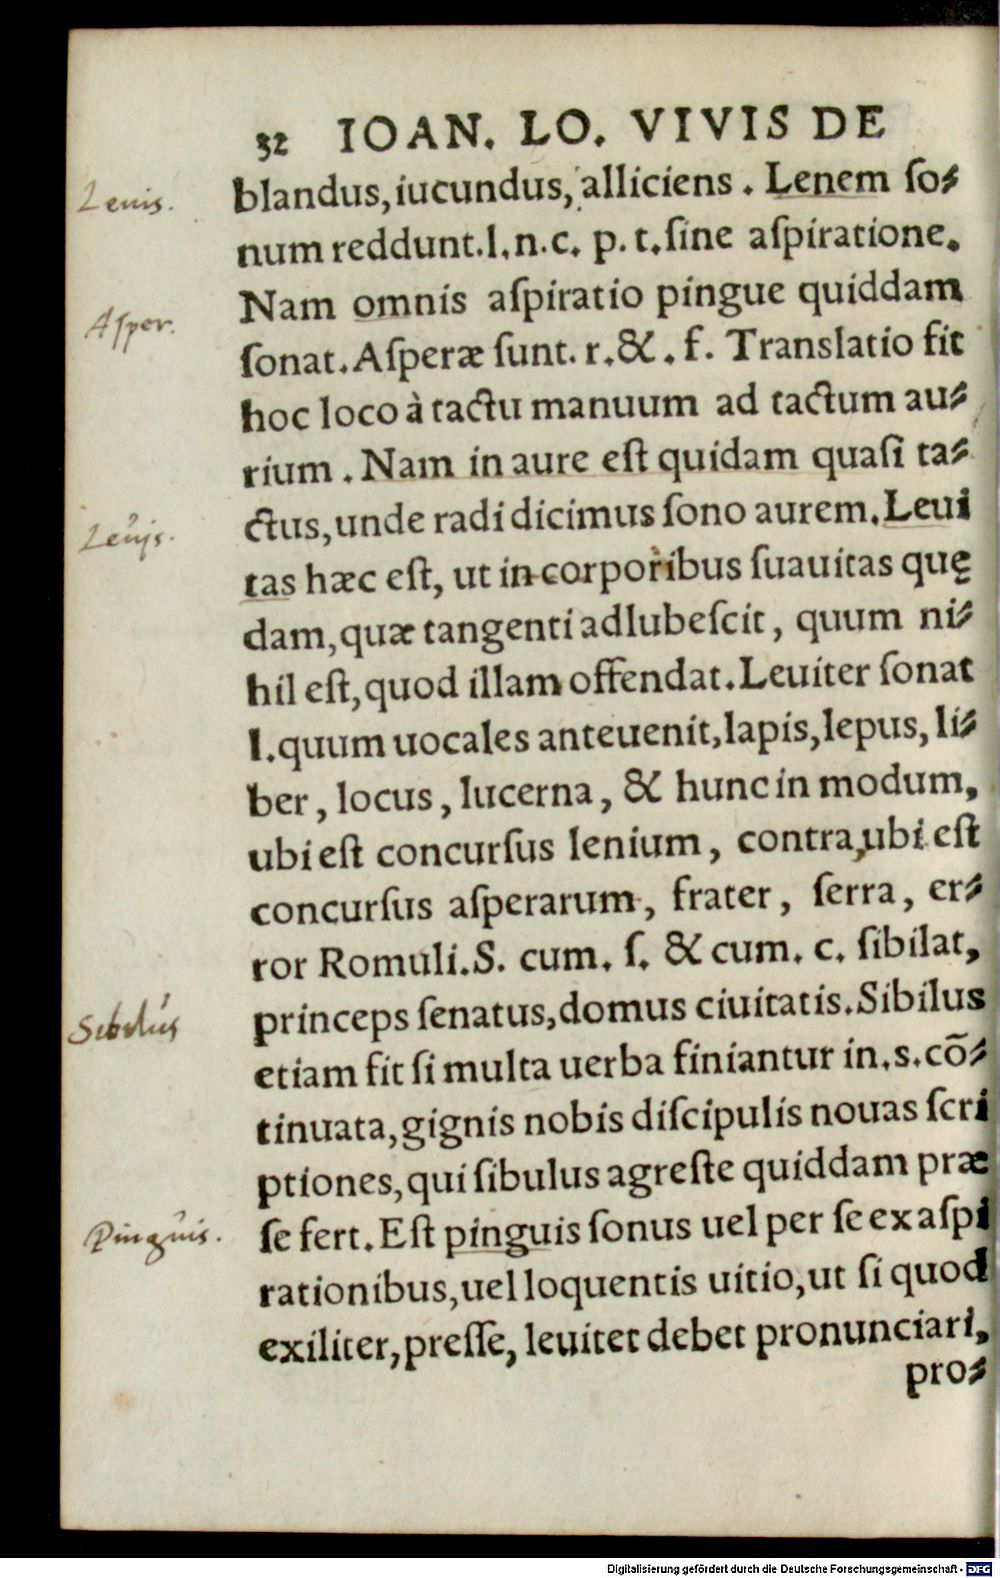 32 IOAN. LO. VIVIS DE
Lenis.
blandus, iucundus, alliciens. Lenem ſo-
num reddunt. l. n. c. p. t. ſine aſpiratione.
Nam omnis aſpiratio pingue quiddam
Aſper.
ſonat. Aſperæ ſunt. r. & . f. Translatio fit
hoc loco à tactu manuum ad tactum au-
rium. Nam in aure eſt quidam quaſi ta-
ctus, unde radi dicimus ſono aurem. Leui
Leuis.
tas hæc eſt, ut in corporibus ſuauitas quę
dam, quæ tangenti adlubeſcit, quum ni-
hil eſt, quod illam offendat. Leuiter ſonat
l. quum uocales anteuenit, lapis, lepus, li-
ber, locus, lucerna, & hunc in modum,
ubi eſt concurſus lenium, contra, ubi eſt
concurſus aſperarum, frater, ſerra, er-
ror Romuli. S. cum. ſ. & cum. c. ſibilat,
princeps ſenatus, domus ciuitatis. Sibilus
Sibilus
etiam fit ſi multa uerba finiantur in. s. cõ-
tinuata, gignis nobis diſcipulis nouas ſcri
ptiones, qui ſibulus agreſte quiddam præ
ſe fert. Eſt pinguis ſonus uel per ſe ex aſpi
Pinguis.
rationibus, uel loquentis uitio, ut ſi quod
exiliter, preſſe, leuitet debet pronunciari,
pro-
Digitalisierung gefördert durch die Deutsche Forschungsgemeinschaft - DFG